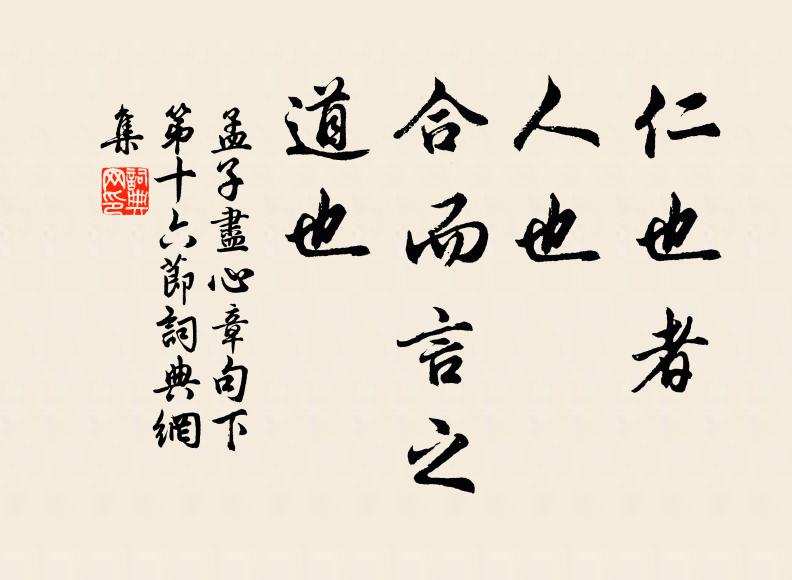 仁也者
人也
合而言之
道也
孟子盡心章句下
第十六節詞典網
集
詞典
网印